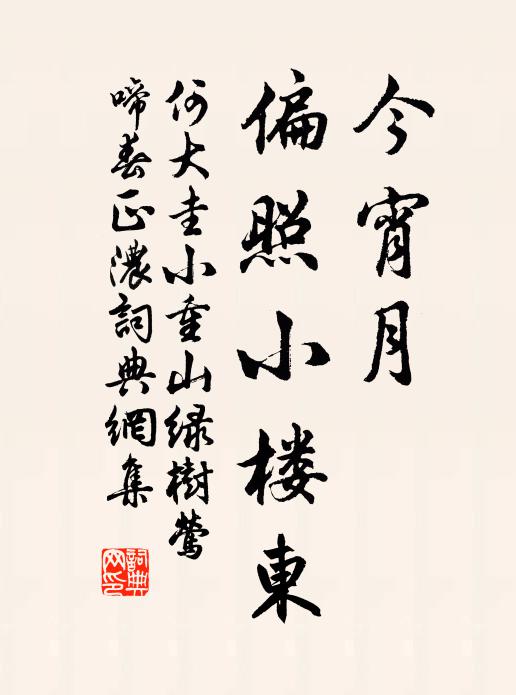 今宵月
偏照小楼東
何大圭小重山绿樹莺
啼春正濃詞典網集
詞典網印